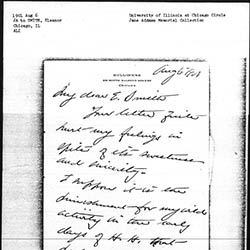 1901 Aug 6
JA to SMITH, Eleanor
Chicago, Il
ALI
University of Illinois at Chicago Circle
Jane Addams Memorial Collection
HULL-HOUSE
CHICAGO
Aug 6
My dear E. Smith
Your letter
hurt my feelings in
spite of its sweetness
and sincerity.
I suppose it is the
punishment for my
activity in the early
days of H. H. that